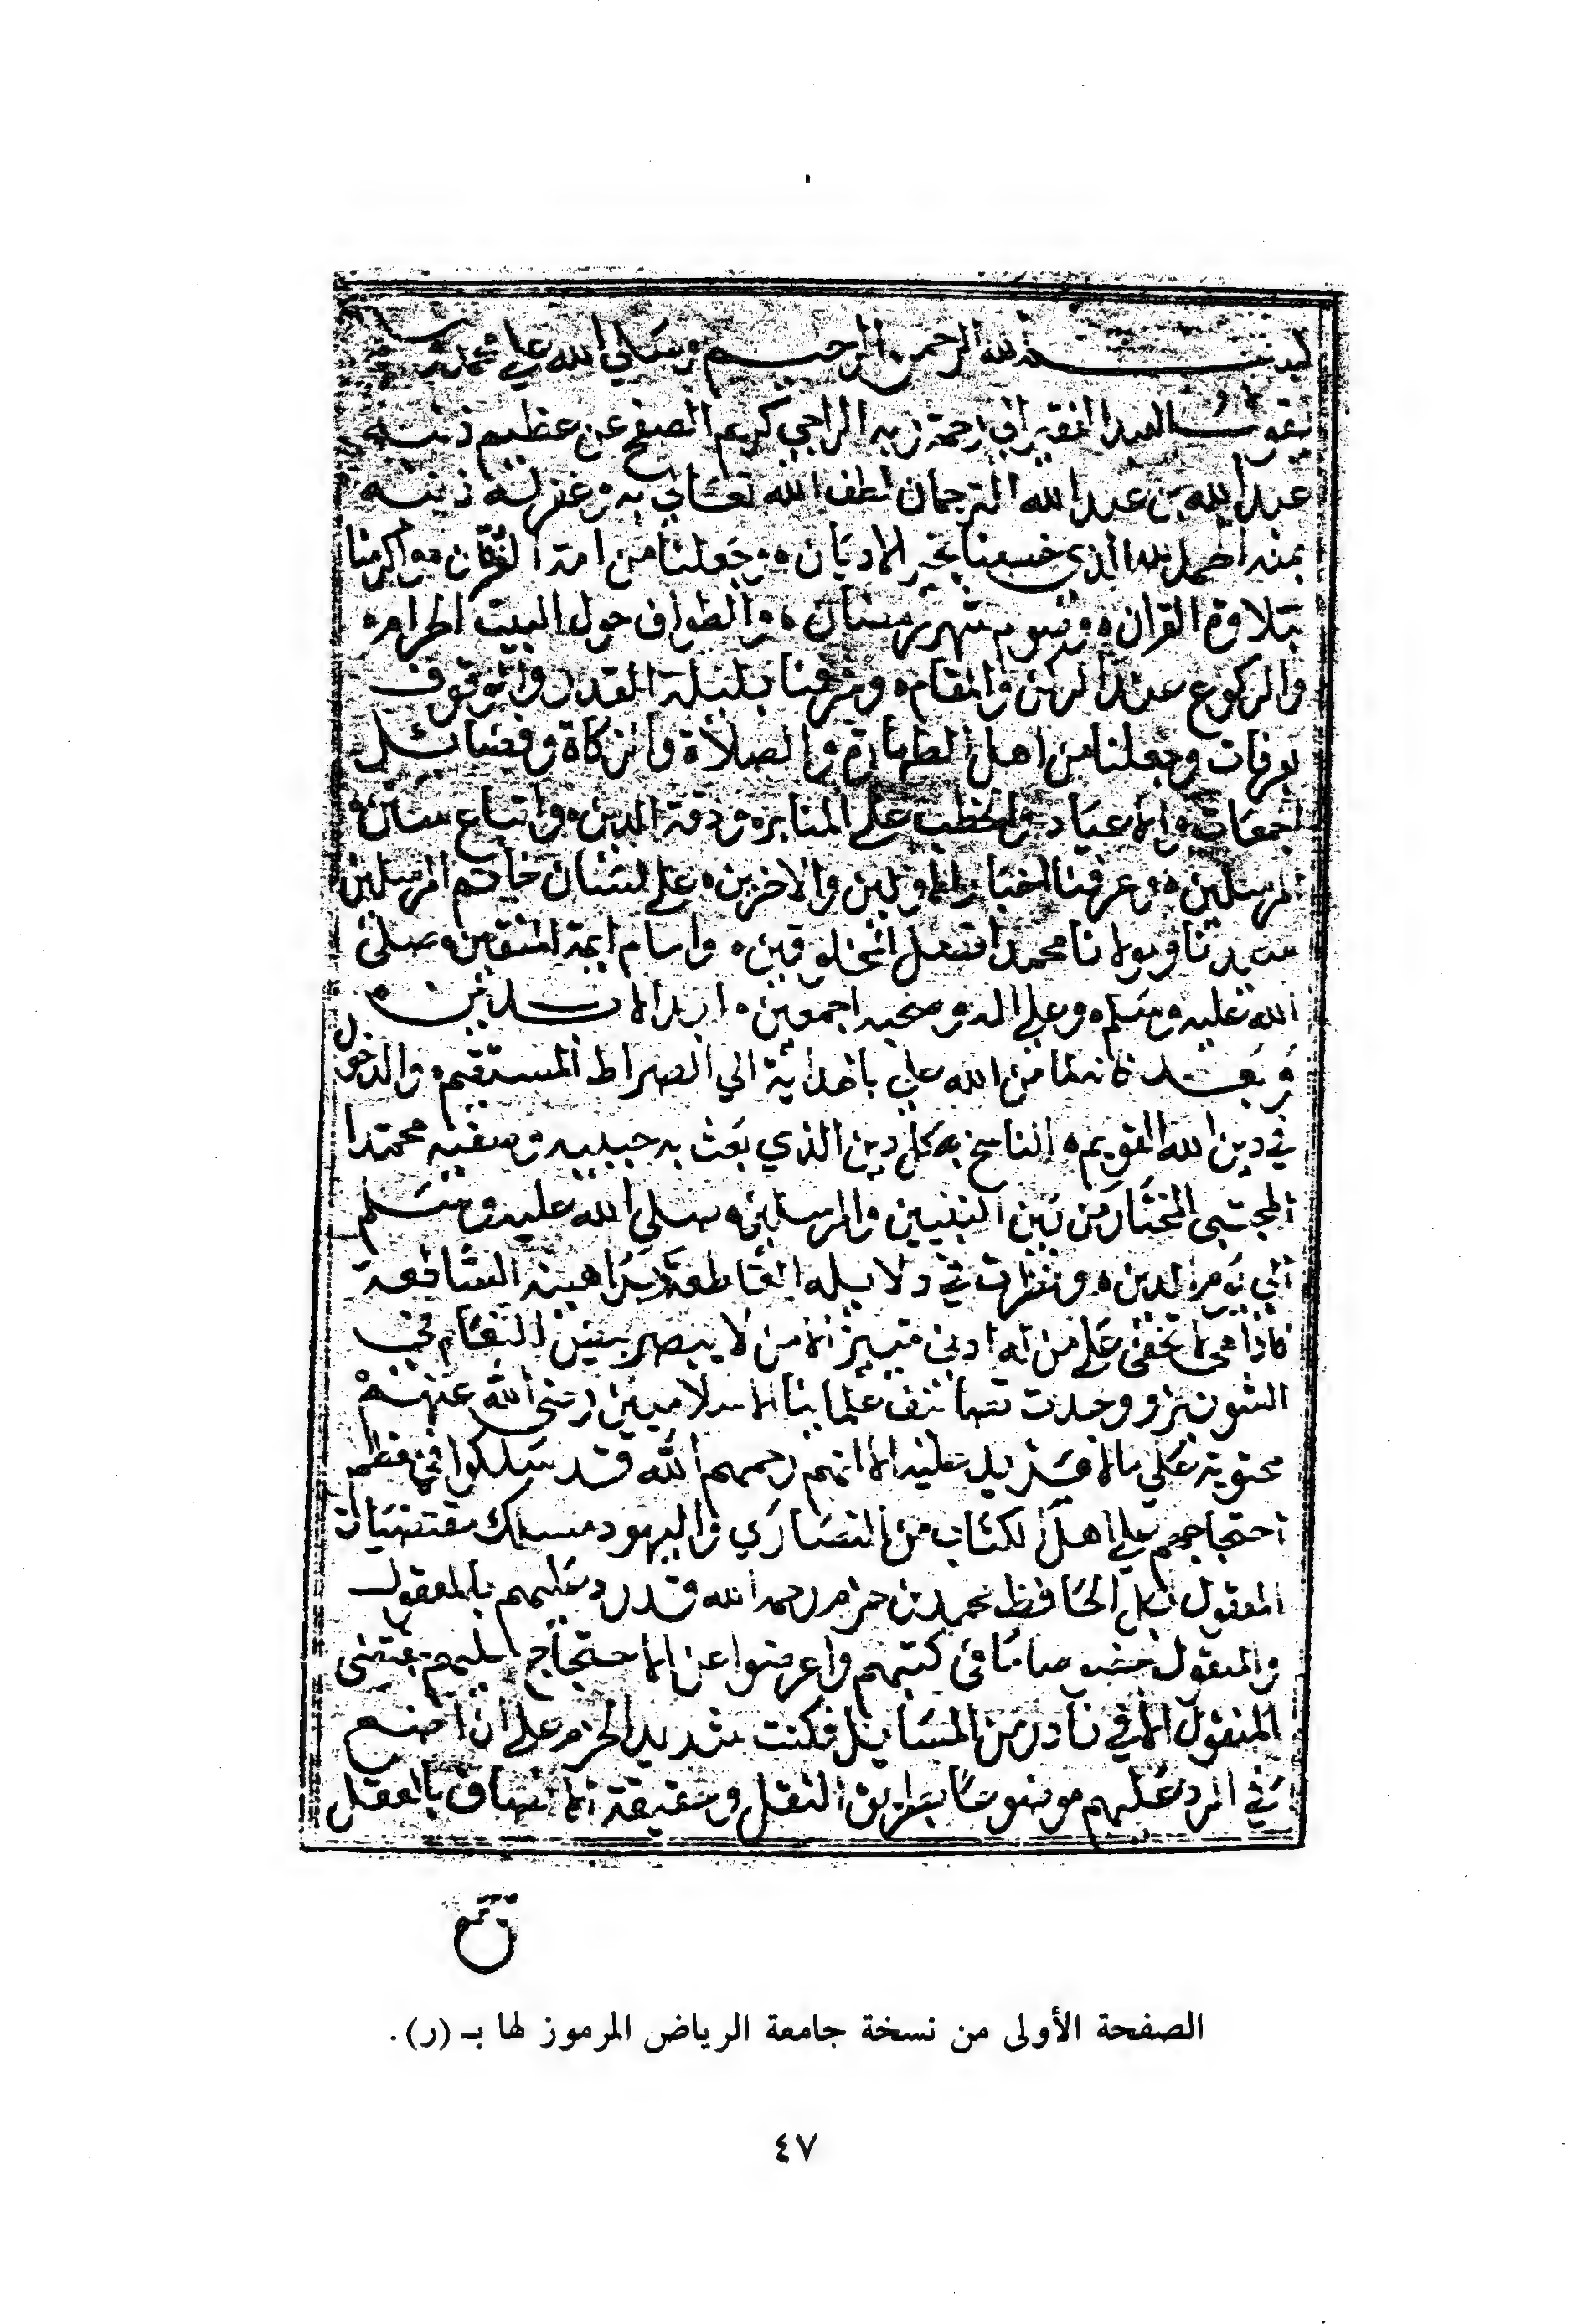 بسم الله الرحمن الرحيم وصلي الله علي محمد
يقول العبد الفقير الي رحمة ربه الراجي كريم الصفح عن عظيم ذنبه
عبد الله بن عبد الله الترجمان لطف الله تعالي به وغفر له ذنبه
بمنه الحمد لله الذي خصنا بخير الاديان ه وجعلنا من امة الفرقان ه واكرمنا
بتلاوة القران ه وصوم شهر رمضان ه والطواف حول البيت الحرام ه
والركوع عند الركن والمقام ه وشرفنا بليلة القدر والوقوف
بعرفات وجعلنا من اهل الطهارة والصلاة والزكاة وفضائل
الجمعات والاعياد والخطب علي المنابر ه ودقة الدين ه واتباع سنن ه
المرسلين ه وعرفنا اخبار الاولين والاخرين ه علي لسان خاتم المرسلين
سيدنا ومولانا محمد افضل المخلوقين ه وامام ايمة المتقين ه صلي
الله عليه وسلم ه وعلي اله وصحبه اجمعين ه ابد الابدين ه
وبعد فانه لما من الله علي بالهداية الي الصراط المستقيم ه والدخول
في دين الله القويم ه الناسخ به كل دين الذي بعث به حبيبه وصفيه محمدا
المجتبي المختار من بين النبيين والمرسلين ه صلي الله عليه وسلم
الي يوم الدين ه ونظرت في دلايله القاطعة وبراهينه الساطعة
فاذا هي لا تخفي علي من له ادني تمييز الا من لا يبصر بين النعام في
ووجدت تصانيف علماينا الاسلاميين رضي الله عنهم
محتوية علي ما لا مزيد عليه الا انهم رحمهم الله قد سلكوا في معظم
احتجاجهم علي اهل الكتاب من النصاري واليهود مسلك مقتضيات
المعقول الحافظ محمد بن حزم رحمه الله قد رد عليهم بالمعقول
والمنقول خصوصا ما في كتبهم واعرضوا عن الاحتجاج عليهم بمقتضي
المنقول الا في نادر من المسايل فكنت شديد الحزم علي ان اضع
في الرد عليهم موضوعا بطريق النقل وحقيقة الانصاف بالعقل
الصفحة الأولى من نسخة جامعة الرياض المرموز لها بـ (ر).
٤٧